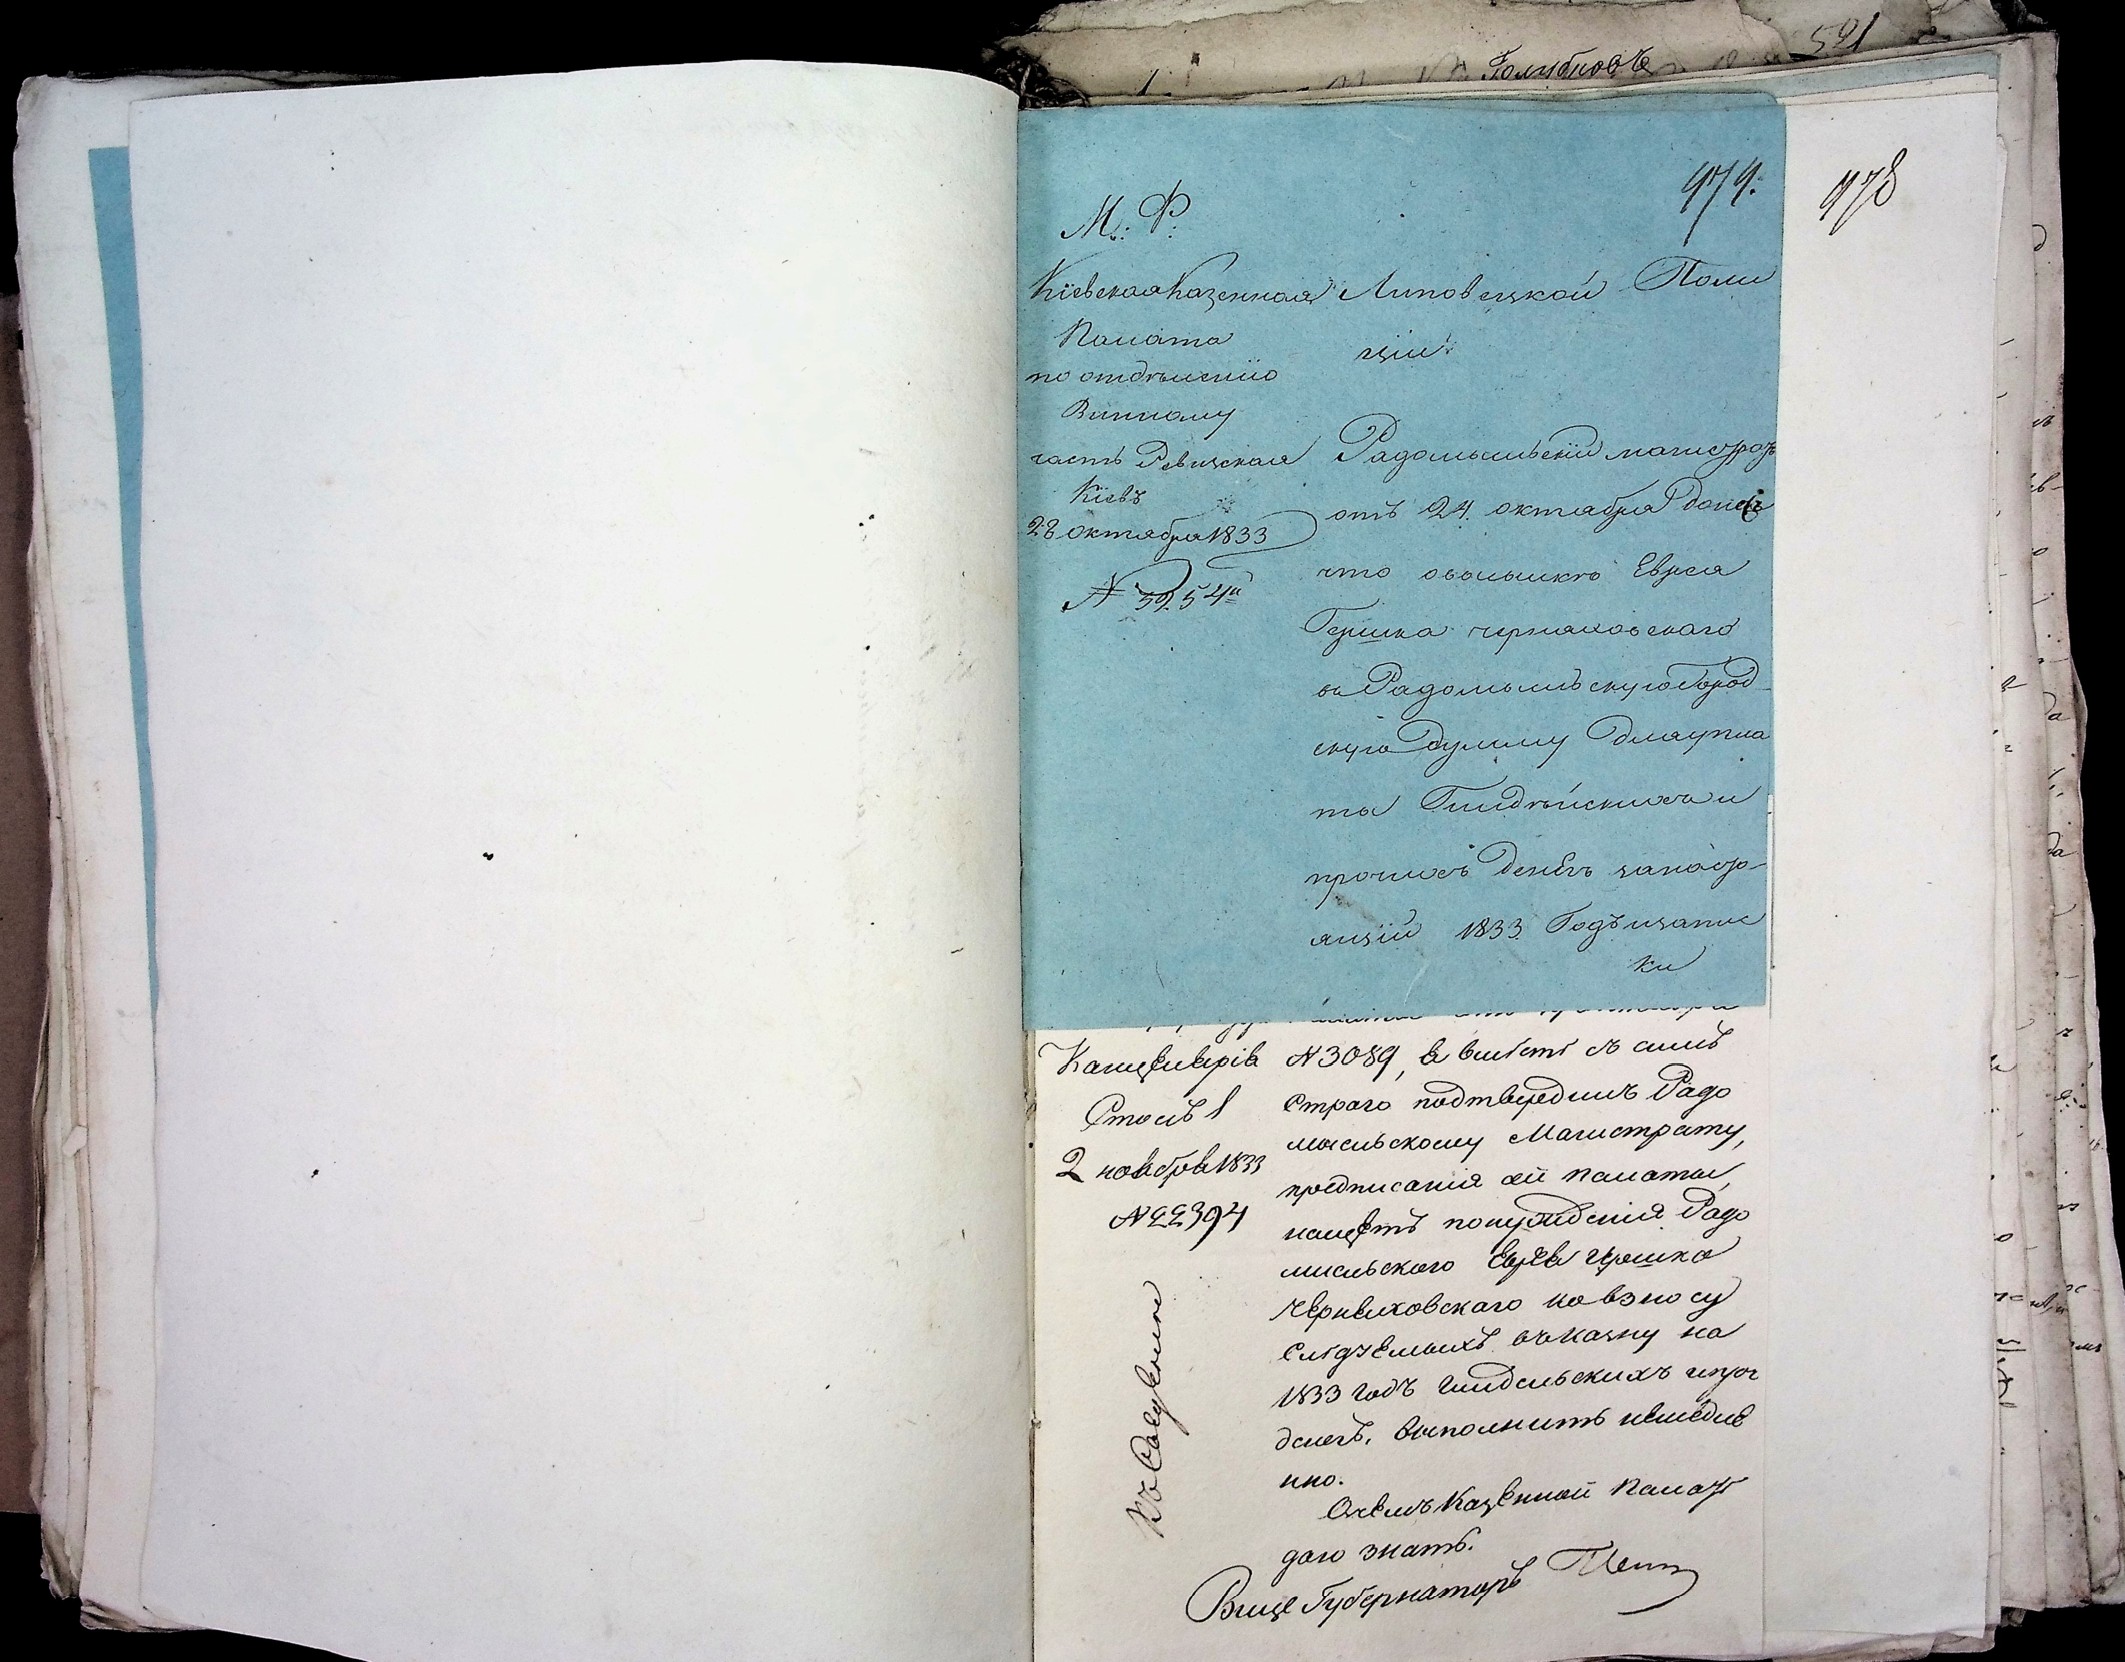 591
Голубковъ
979.
978
М: Ф:
Кіевская Казенная
Палата
по отдѣленію
Винному
часть Ревизская
Кіевъ
28 октября 1833
N 5954
Липовецкой Поли
ціи.
Радомысльскій магистратъ
отъ 24. октября донесъ
что о высылкѣ Еврея
Гершка Черняховскаго
въ Радомысльскую Город
скую думу для упла
ты Гильдѣйскихъ и
прочихъ денегъ за насто
ящій 1833 Годъ и запис
ки
Канцелярія
Столъ 1
2 ноября 1833
N 22394
Къ Свѣденію
N 3089, я вмѣстѣ съ симъ
строго подтвердилъ Радо
мысльскому Магистрату,
предписанія сей палаты,
насчетъ понужденія Радо
мысльского Еврея Гершка
Черняховскаго ко взносу
слѣдуемыхъ въ казну на
1833 годъ гильдейскихъ и проч
денегъ, выполнить немедле
нно.
О чемъ Казенной Палатѣ
даю знать.
Вице Губернаторъ